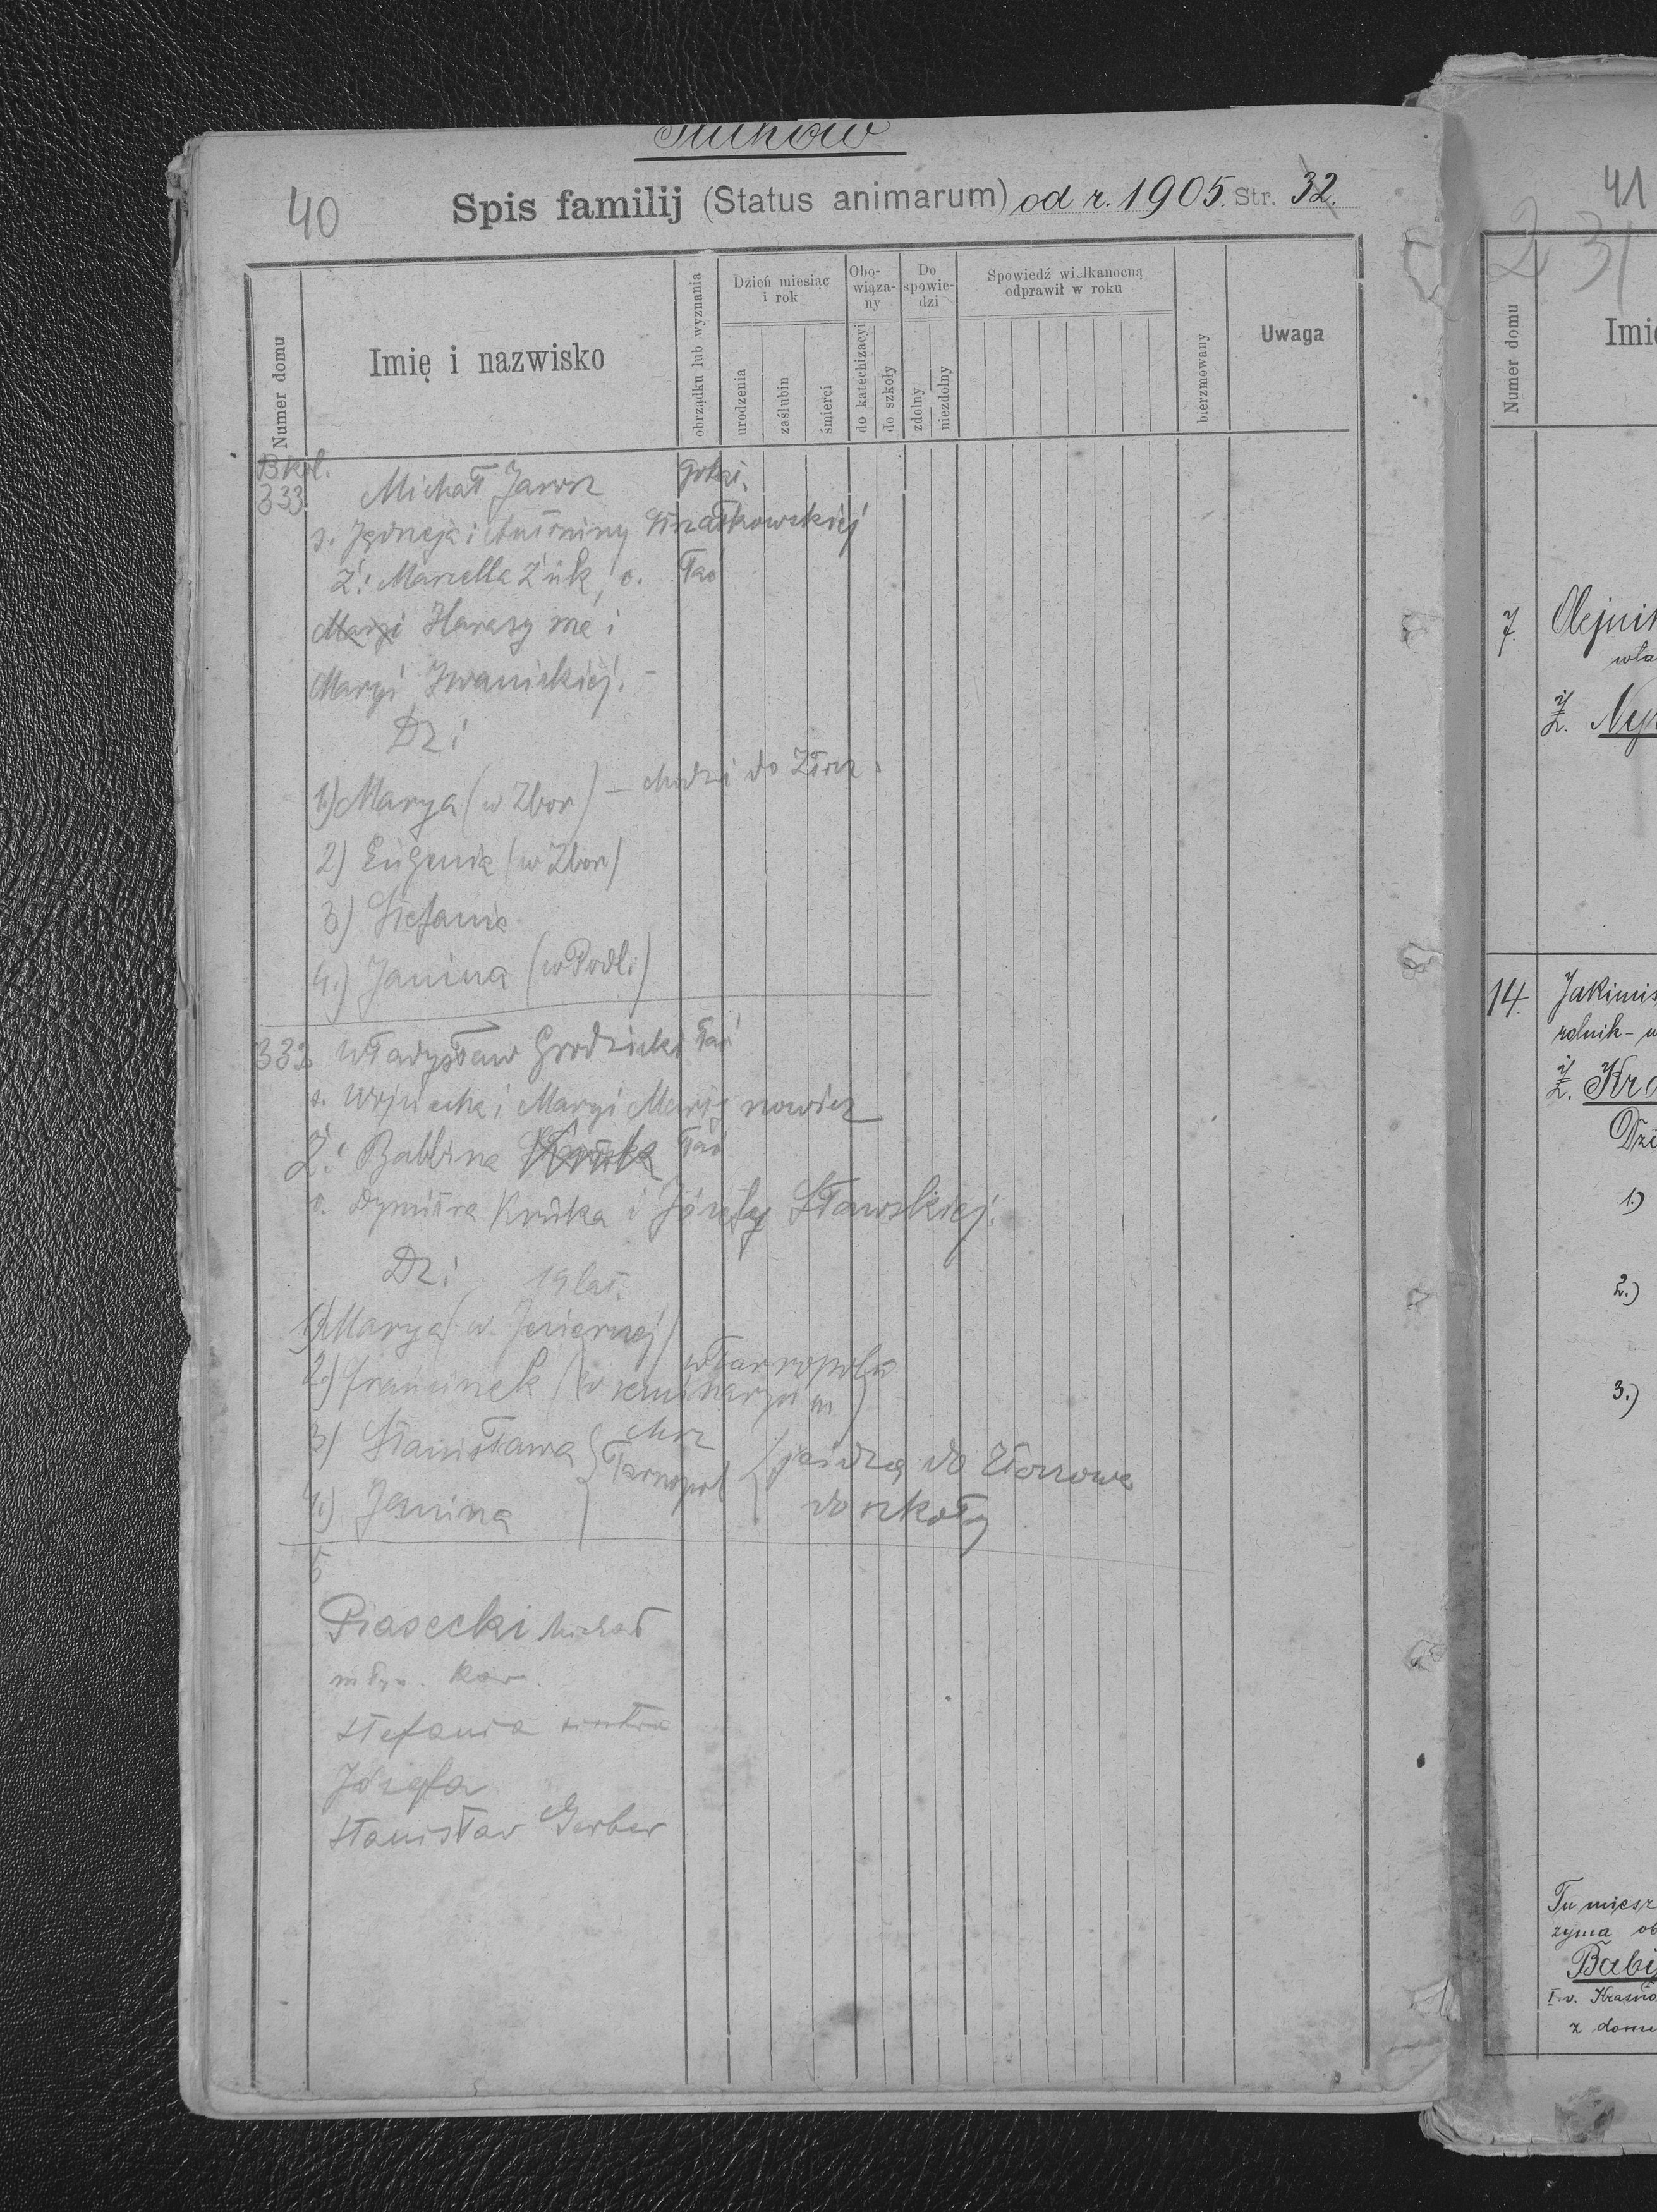 40
Spis familij (Status animarum) od r. 1905. Str. 32.
Numer domu
Imię i nazwisko
obrządku lub wyznania
Dzień miesiąc i rok
urodzenia
zaślubin
śmierci
Obowiązany
do katechizacyi
do szkoły
Do spowiedzi
zdolny
niezdolny
Spowiedź wielkanocną odprawił w roku
bierzmowany
Uwaga
333 Michał Jarosz
s. Jędrzeja i Antoniny
Ż: Marcella Żuk, c. łac
Maryi Harasyma i
Maryi Iwanickiej. -
Dz:
1.) Marya (w Zbor) - chodzi do Złocz.
2) Eugenia (w Zbor)
3) Stefania
4.) Janina (w Podl:)
332 Władysław Grodzicki łać
s. Wojciecha i Maryi
Ż: Balbina łać
c. Dymitra Kruka i Józefy Stawskiej.
Dz: 19 lat.
1) Marya (w. Jeziernej)
2.) Franciszek (w seminaryum w Tarnopolu)
3) Stanisława chrz Tarnopol (jeżdżą do Złoczowa
4.) Janina do szkoły
5
Piasecki Michał
młyn.
Stefania siostra
Józefa
Stanisław Gerber
41
31
Numer domu
Imię
7. Olejnik
ż.
14. Jakimis
rolnik - w
ż. Kra
Dzi
1.)
2.)
3.)
Tu miesz
zyma ob
Babi
I v. Krasno
z domu